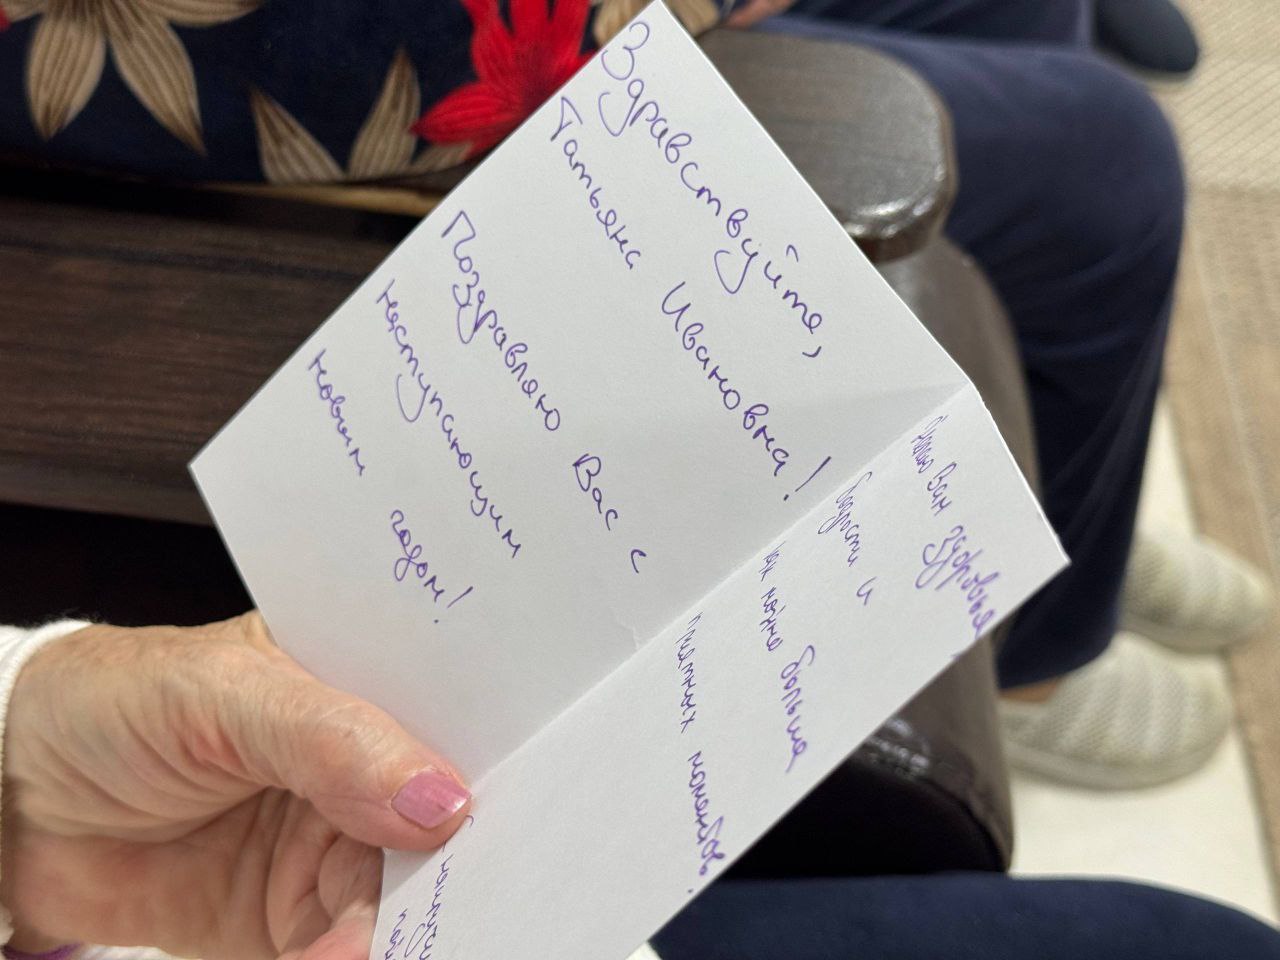 Здравствуйте,
Татьяна Ивановна!
Поздравляю Вас с
наступающим
новым годом!
Желаю Вам здоровья,
бодрости и
как можно больше
приятных моментов!
С наилу